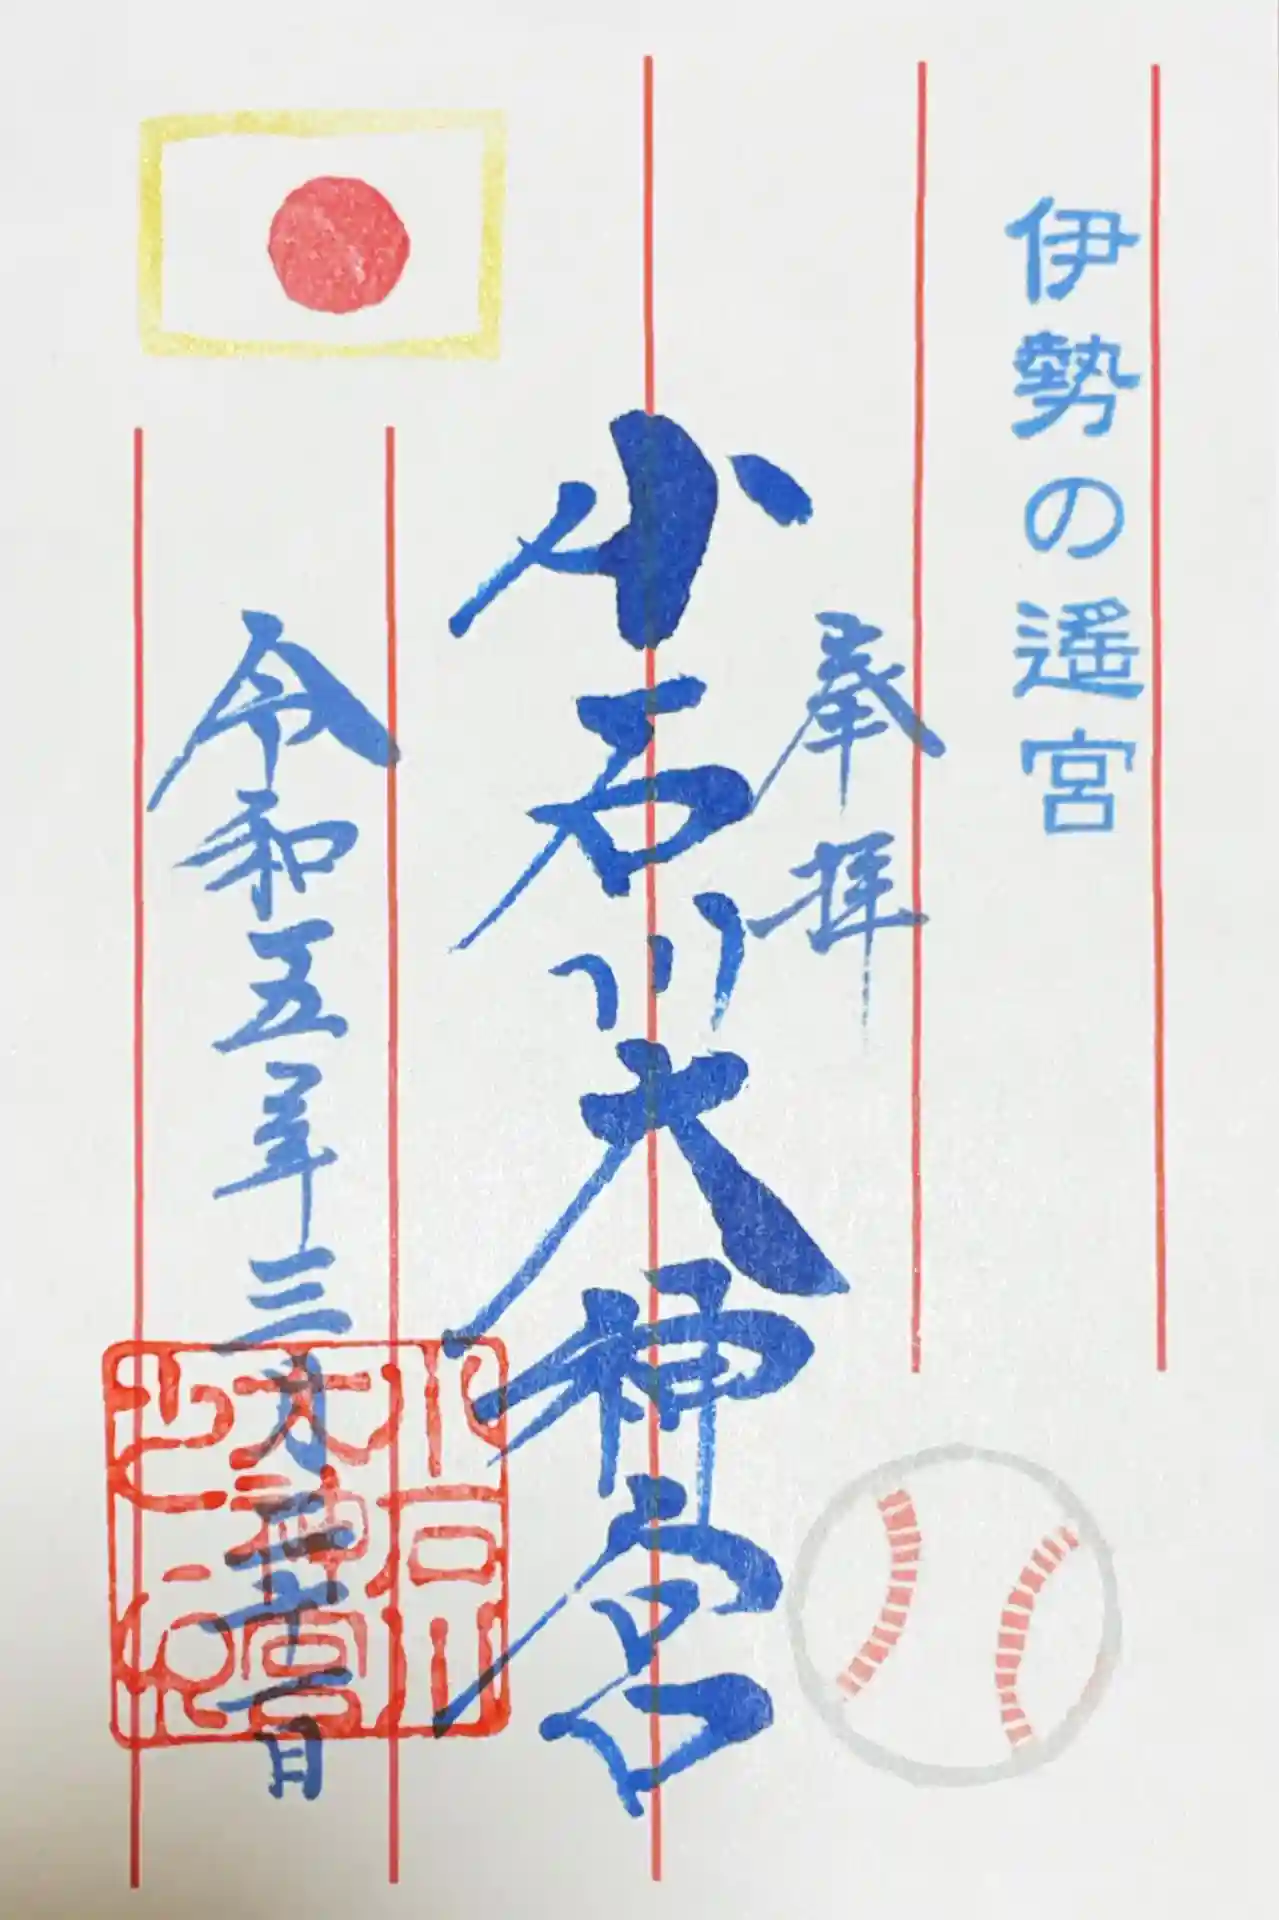 伊勢の遥宮
奉拝
小石川大神宮
令和五年三月二十二日
小石川
大神宮
之印